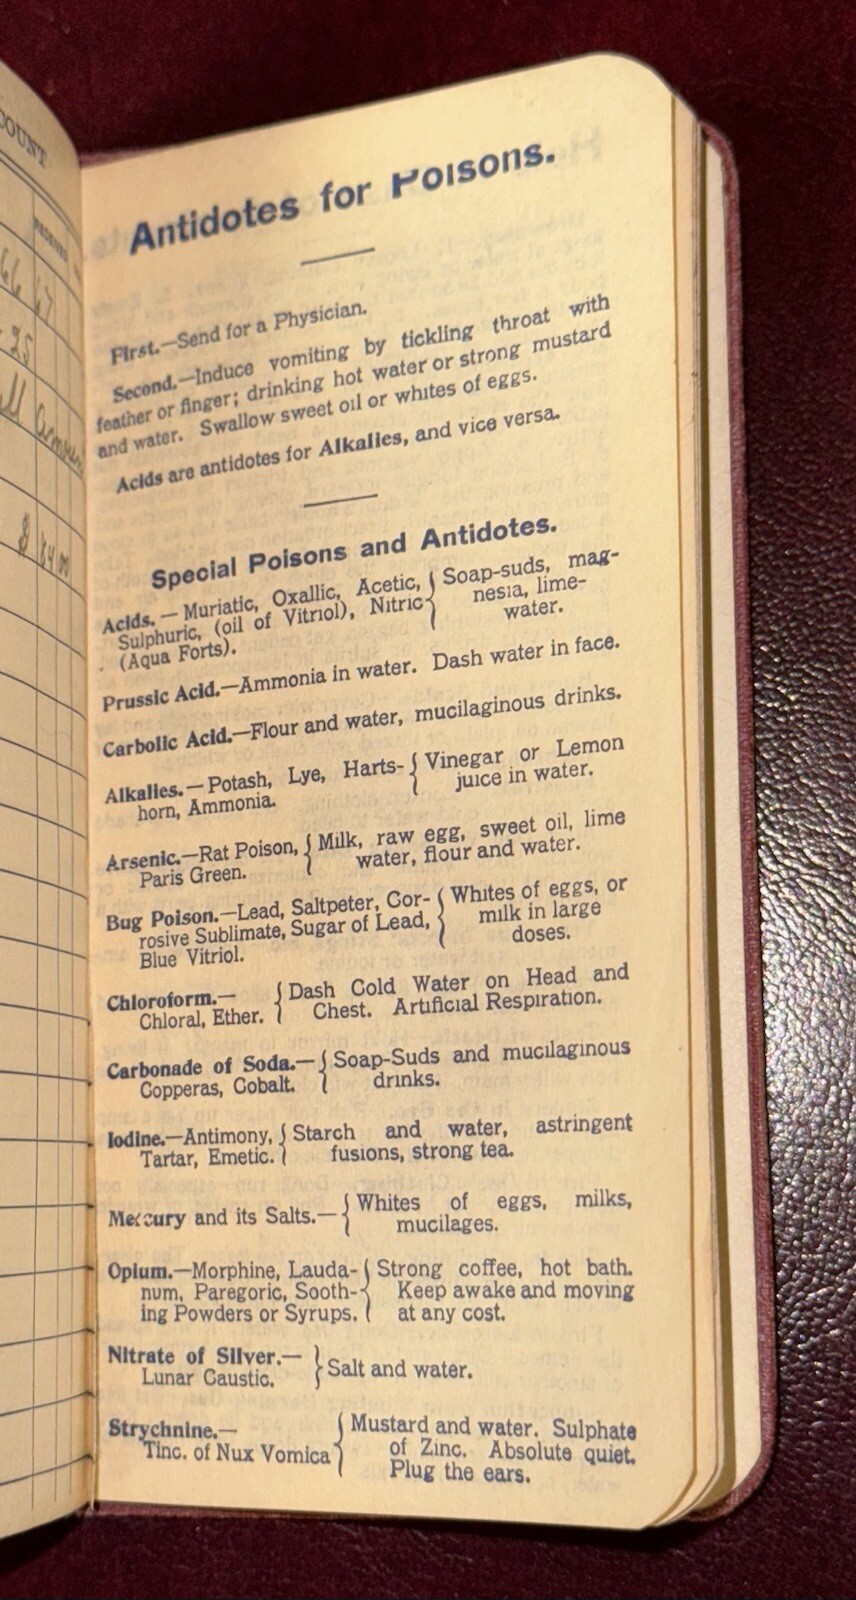 COUNT
66 67
25
$ 84 00
Antidotes for Poisons.
First.—Send for a Physician.
Second.—Induce vomiting by tickling throat with
feather or finger; drinking hot water or strong mustard
and water. Swallow sweet oil or whites of eggs.
Acids are antidotes for Alkalies, and vice versa.
Special Poisons and Antidotes.
Acids.—Muriatic, Oxallic, Acetic, { Soap-suds, mag-
Sulphuric, (oil of Vitriol), Nitric { nesia, lime-
(Aqua Forts). { water.
Prussic Acid.—Ammonia in water. Dash water in face.
Carbolic Acid.—Flour and water, mucilaginous drinks.
Alkalies.—Potash, Lye, Harts- { Vinegar or Lemon
horn, Ammonia. { juice in water.
Arsenic.—Rat Poison, { Milk, raw egg, sweet oil, lime
Paris Green. { water, flour and water.
Bug Poison.—Lead, Saltpeter, Cor- { Whites of eggs, or
rosive Sublimate, Sugar of Lead, { milk in large
Blue Vitriol. { doses.
Chloroform.— { Dash Cold Water on Head and
Chloral, Ether. { Chest. Artificial Respiration.
Carbonade of Soda.— { Soap-Suds and mucilaginous
Copperas, Cobalt. { drinks.
Iodine.—Antimony, { Starch and water, astringent
Tartar, Emetic. { fusions, strong tea.
Mercury and its Salts.— { Whites of eggs, milks,
mucilages.
Opium.—Morphine, Lauda- { Strong coffee, hot bath.
num, Paregoric, Sooth- { Keep awake and moving
ing Powders or Syrups. { at any cost.
Nitrate of Silver.— } Salt and water.
Lunar Caustic.
Strychnine.— { Mustard and water. Sulphate
Tinc. of Nux Vomica { of Zinc. Absolute quiet.
Plug the ears.